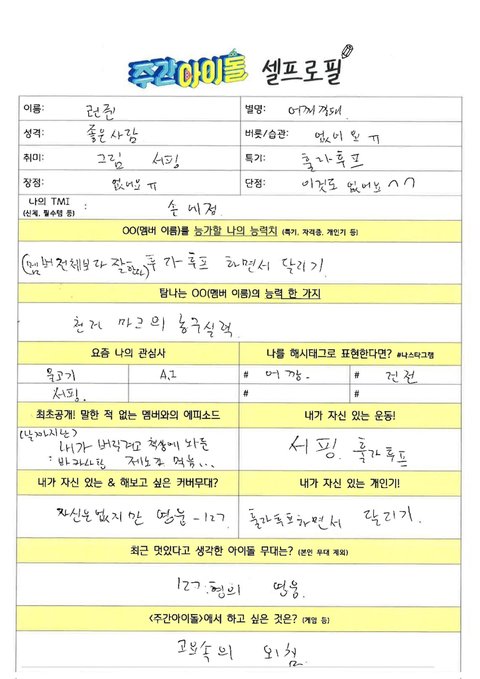 주간아이돌 셀프로필
이름: 런쥔 별명: 어찌저째
성격: 좋은사람 버릇/습관: 없어요 ㅠ
취미: 그림 서핑 특기: 훌라후프
장점: 없어요 ㅠ 단점: 이것도 없어요 ^^
나의 TMI
(신체, 필수템 등) : 손
OO(멤버 이름)를 능가할 나의 능력치 (특기, 자격증, 개인기 등)
(멤버전체보다 잘한다) 훌라후프 하면서 달리기
탐나는 OO(멤버 이름)의 능력 한 가지
천러 마크의 농구실력
요즘 나의 관심사 나를 해시태그로 표현한다면? #나스타그램
물고기 A.I # # 건전
서핑. # #
최초공개! 말한 적 없는 멤버와의 에피소드 내가 자신 있는 운동!
(날짜지난) 내가 버리려고 책상에 놔둔 서핑. 훌라후프
: 바카사탕 제노가 먹음...
내가 자신 있는 & 해보고 싶은 커버무대? 내가 자신 있는 개인기!
자신은없지만 영웅 -127. 훌라후프하면서 달리기.
최근 멋있다고 생각한 아이돌 무대는? (본인 무대 제외)
127 형의 영웅.
<주간아이돌>에서 하고 싶은 것은? (게임 등)
고요속의 외침